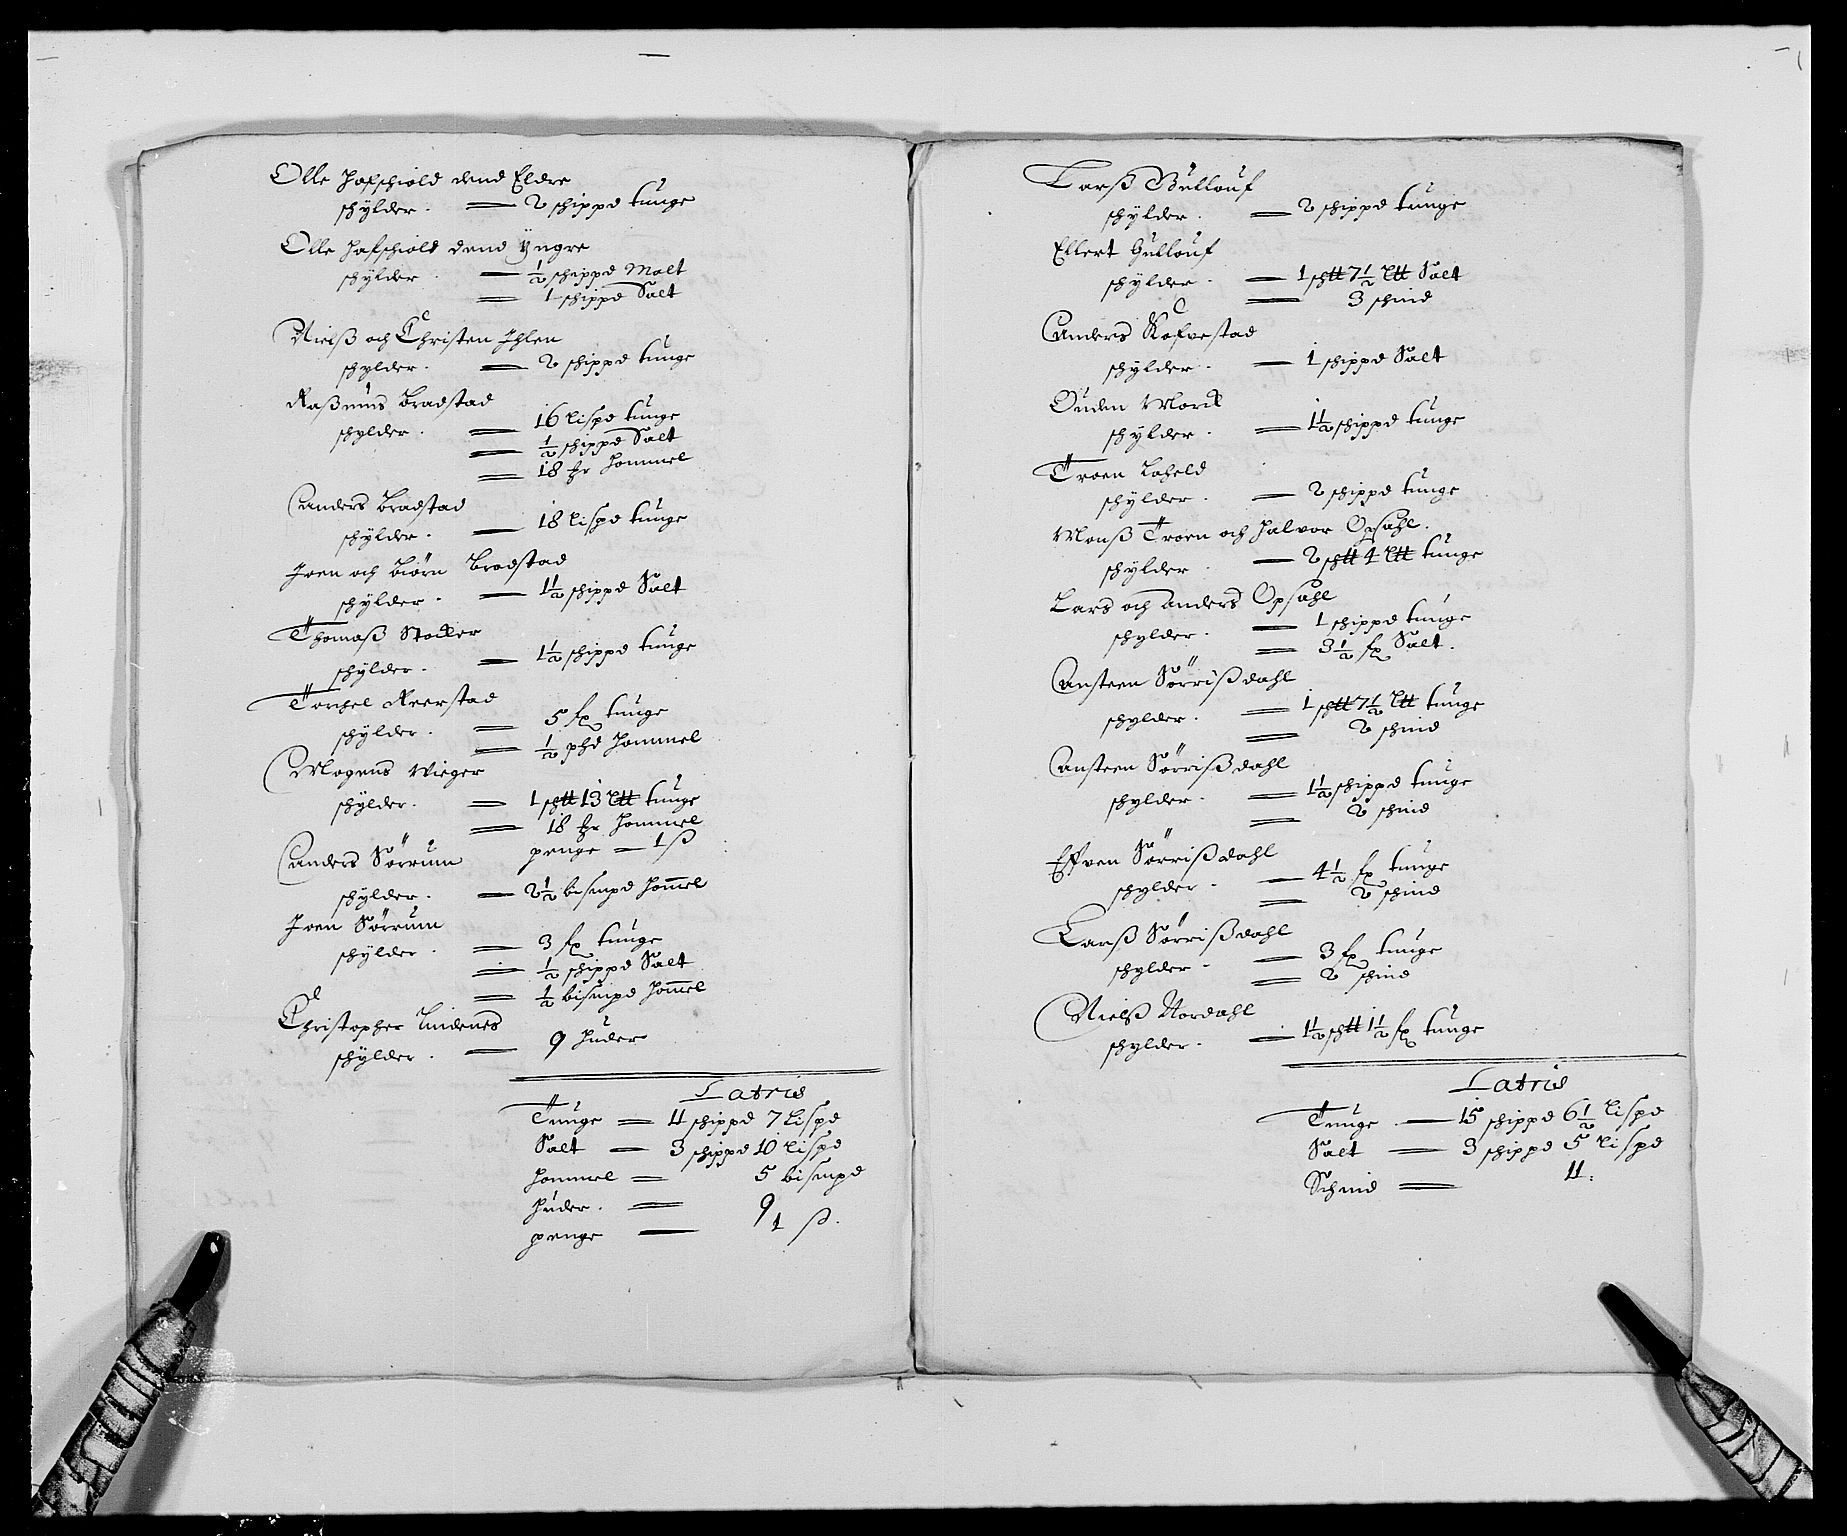 Olle Hafschiold dend Eldre
schÿlder. — 2 schippd tunge
Olle Hafschiold dend Ÿngre
schÿlder — ½ schippd Malt
— 1 schippd Salt
Nielß och Christen Ihlen
schÿlder. — 2 schippd tunge
Raßmus Bradstad
schÿlder. — 16 lispd tunge
— ½ schippd Salt
— 18 Hommel
Anders Bradstad
schÿlder. — 18 lispd tunge
Joen och Biörn Bradstad
schÿlder. — 1½ schippd Salt
Thomaß Stocker
schÿlder. — 1½ schippd tunge
Torchel Reerstad
schÿlder. — 5 fx tunge
— ½ phd Hommel
Mogens Wieger
schÿlder. — 1 sch℔ 13 L℔ tunge
— 18 Hommel
penge — 1 ß
Anders Sörrum
schÿlder. — 2½ bismpd Hom̅el
Joen Sörrum
schÿlder. — 3 fx tunge
— ½ schippd Salt
— ½ bismpd Hom̅el
Christopher Lundenes
schÿlder. — 9 Huder
Latris
Tunge — 11 schippd 7 lispd
Salt — 3 schippd 10 lispd
Hommel — 5 bismpd
Huder. — 9
penge — 1 ß.
Larß Gullouf
schÿlder. — 2 schippd tunge
Ellert Gullouf
schÿlder. — 1 sch℔ 7½ L℔ Salt
— 3 schind
Anders Kofvestad
schÿlder. — 1 schippd Salt
Ouden Morck
schÿlder. — 1½ schippd tunge
Troen Loheld
schÿlder. — 2 schippd tunge
Monß Troen och Halvor Opsahl.
schÿlder. — 2 sch℔ 4 L℔ tunge
Lars och Anders Opsahl
schÿlder. — 1 schippd tunge
— 3½ fx Salt.
Ansteen Sörrißdahl
schÿlder. — 1 sch℔ 7½ L℔ tunge
— 2 schind
Ansteen Sörrißdahl
schÿlder. — 1½ schippd tunge
— 2 schind
Effven Sörrißdahl
schÿlder. — 4½ fx tunge
— 2 schind
Larß Sörrißdahl
schÿlder. — 3 fx tunge
— 2 schind
Nielß Nordahl
schÿlder. — 1½ sch℔ 1½ fx tunge
Latris
Tunge — 15 schippd 6½ lispd
Salt — 3 schippd 5 lispd
Schind — 11.